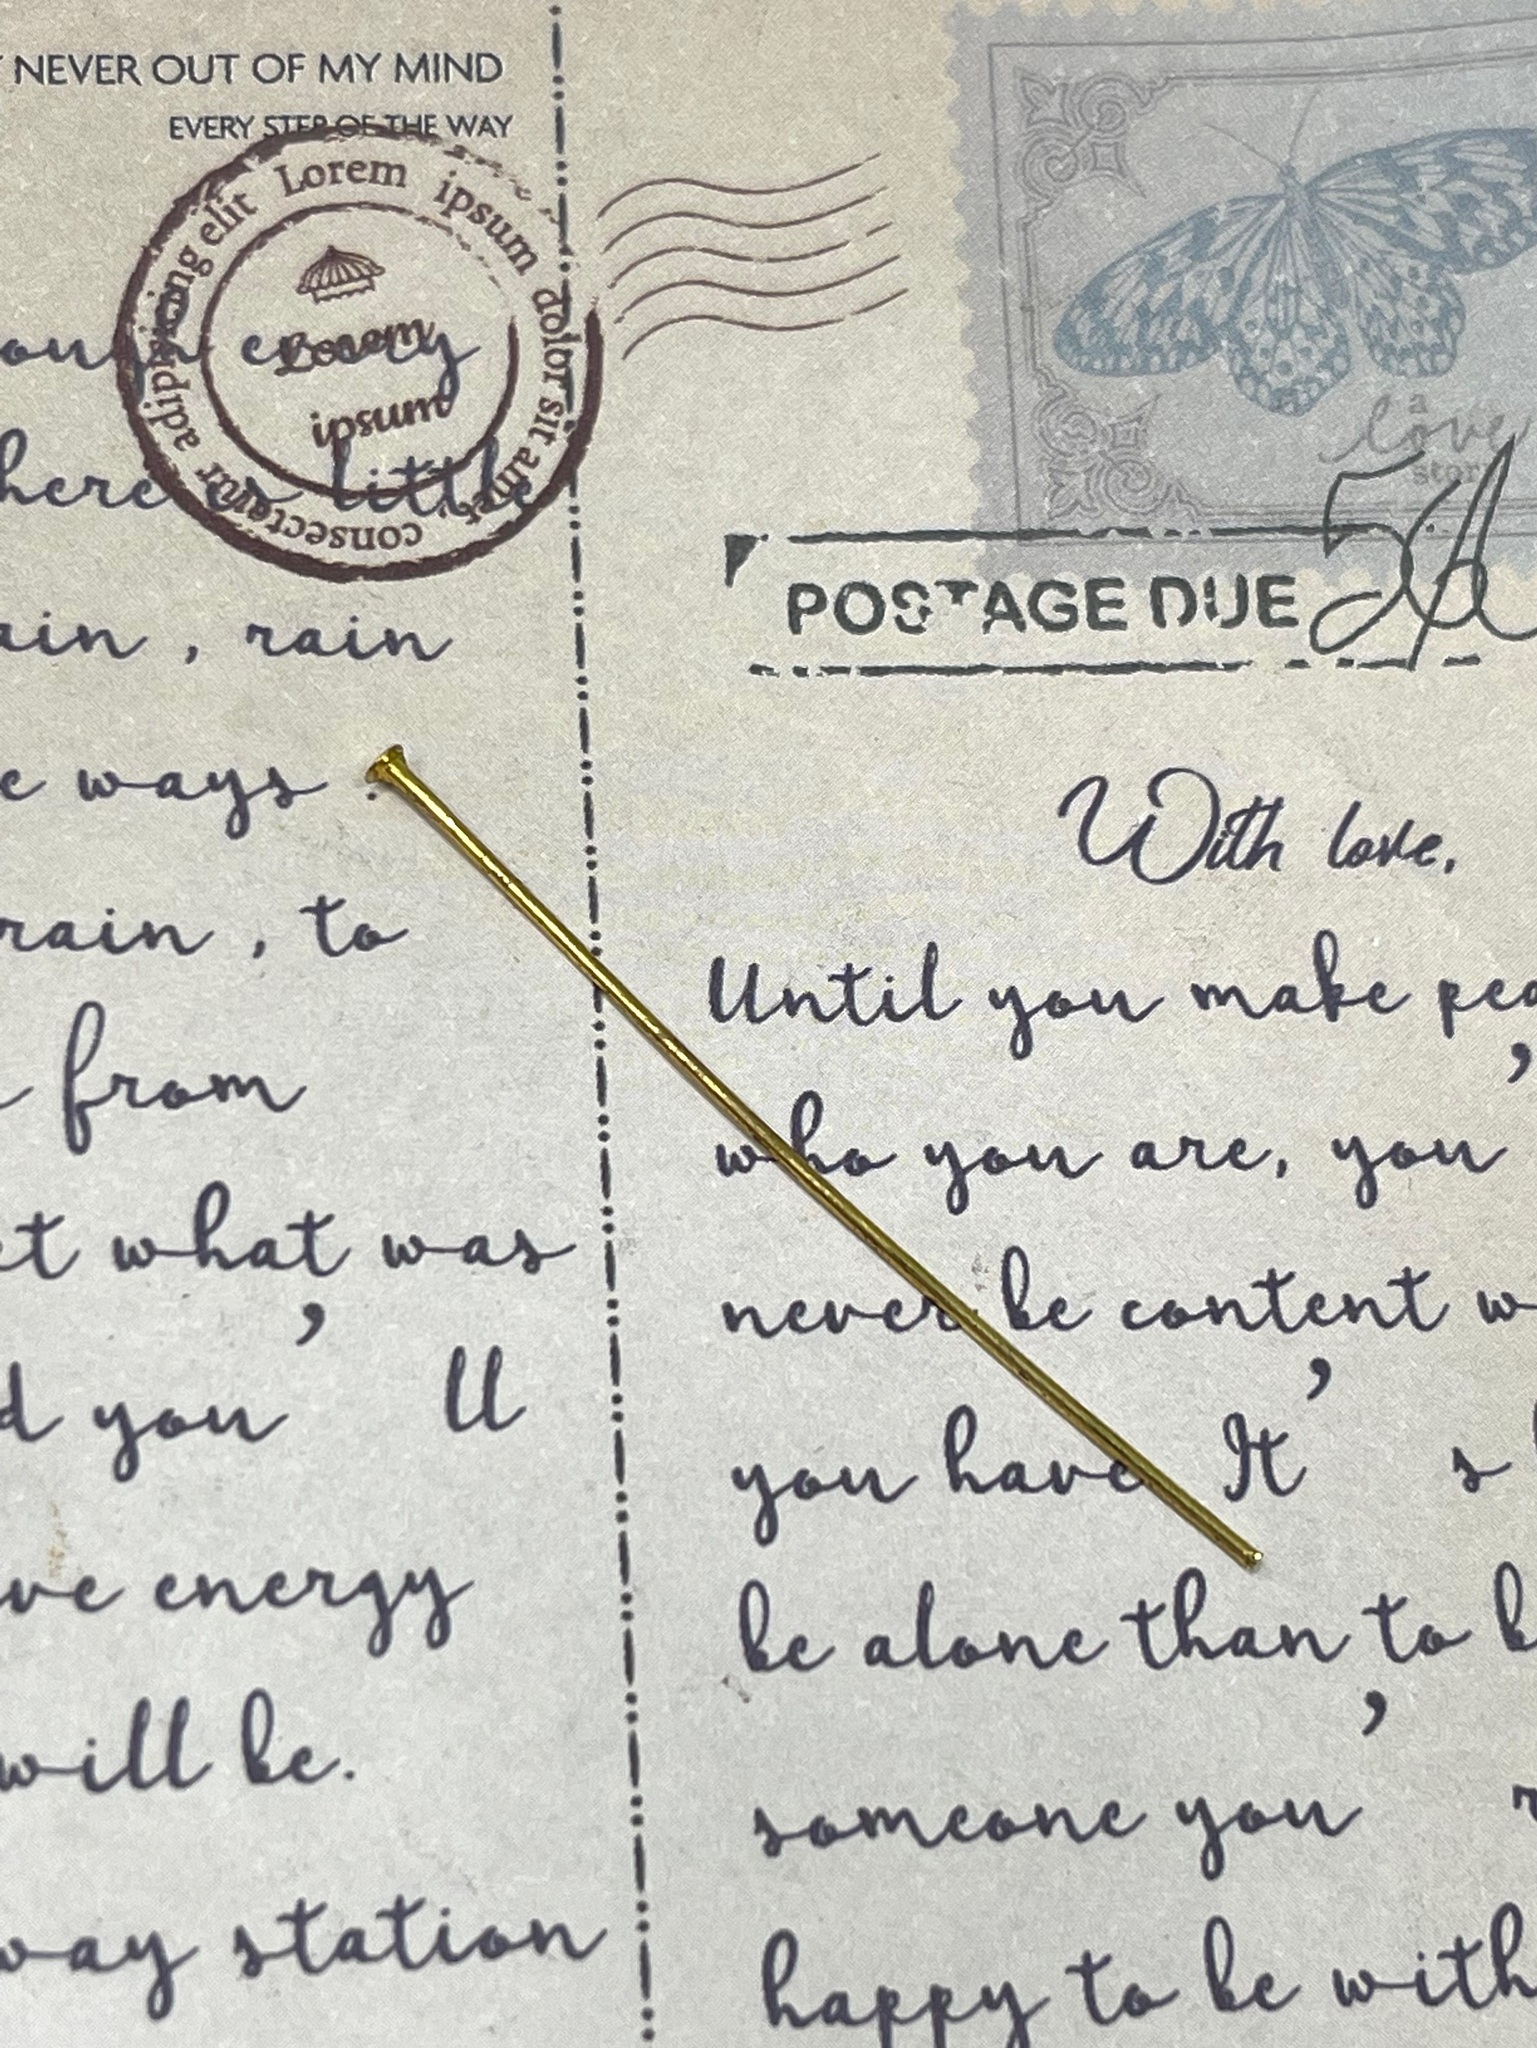 NEVER OUT OF MY MIND
EVERY STEP OF THE WAY
Lorem ipsum dolor sit amet, consectetur adipisicing elit
Lorem
ipsum
every
here is little
ain , rain
e ways .
rain , to
from
et what was
d you ' ll
ve energy
will be.
way station
a
love
story
POSTAGE DUE
With love,
Until you make pea
who you are, you '
never be content w
you have It ' s
be alone than to b
someone you ' r
happy to be with